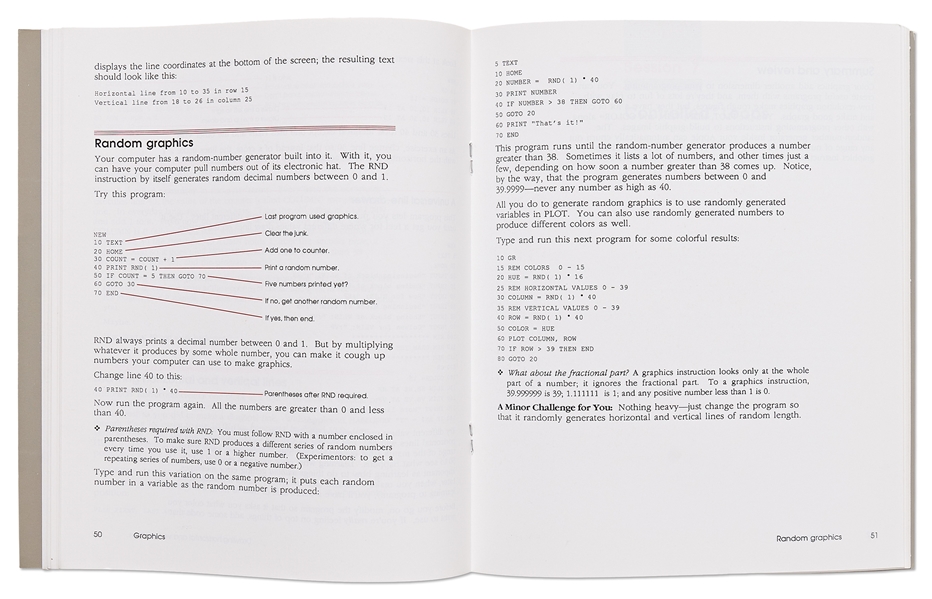 displays the line coordinates at the bottom of the screen; the resulting text
should look like this:
Horizontal line from 10 to 35 in row 15
Vertical line from 18 to 26 in column 25
Random graphics
Your computer has a random-number generator built into it. With it, you
can have your computer pull numbers out of its electronic hat. The RND
instruction by itself generates random decimal numbers between 0 and 1.
Try this program:
Last program used graphics.
NEW
10 TEXT
Clear the junk.
20 HOME
Add one to counter.
30 COUNT = COUNT + 1
Print a random number.
40 PRINT RND( 1)
Five numbers printed yet?
50 IF COUNT = 5 THEN GOTO 70
If no, get another random number.
60 GOTO 30
If yes, then end.
70 END
RND always prints a decimal number between 0 and 1. But by multiplying
whatever it produces by some whole number, you can make it cough up
numbers your computer can use to make graphics.
Change line 40 to this:
40 PRINT RND( 1) * 40
Parentheses after RND required.
Now run the program again. All the numbers are greater than 0 and less
than 40.
❖ Parentheses required with RND: You must follow RND with a number enclosed in
parentheses. To make sure RND produces a different series of random numbers
every time you use it, use 1 or a higher number. (Experimentors: to get a
repeating series of numbers, use 0 or a negative number.)
Type and run this variation on the same program; it puts each random
number in a variable as the random number is produced:
50 Graphics
5 TEXT
10 HOME
20 NUMBER = RND( 1) * 40
30 PRINT NUMBER
40 IF NUMBER > 38 THEN GOTO 60
50 GOTO 20
60 PRINT "That's it!"
70 END
This program runs until the random-number generator produces a number
greater than 38. Sometimes it lists a lot of numbers, and other times just a
few, depending on how soon a number greater than 38 comes up. Notice,
by the way, that the program generates numbers between 0 and
39.9999—never any number as high as 40.
All you do to generate random graphics is to use randomly generated
variables in PLOT. You can also use randomly generated numbers to
produce different colors as well.
Type and run this next program for some colorful results:
10 GR
15 REM COLORS 0 - 15
20 HUE = RND( 1) * 16
25 REM HORIZONTAL VALUES 0 - 39
30 COLUMN = RND( 1) * 40
35 REM VERTICAL VALUES 0 - 39
40 ROW = RND( 1) * 40
50 COLOR = HUE
60 PLOT COLUMN, ROW
70 IF ROW > 39 THEN END
80 GOTO 20
❖ What about the fractional part? A graphics instruction looks only at the whole
part of a number; it ignores the fractional part. To a graphics instruction,
39.999999 is 39; 1.111111 is 1; and any positive number less than 1 is 0.
A Minor Challenge for You: Nothing heavy—just change the program so
that it randomly generates horizontal and vertical lines of random length.
Random graphics 51